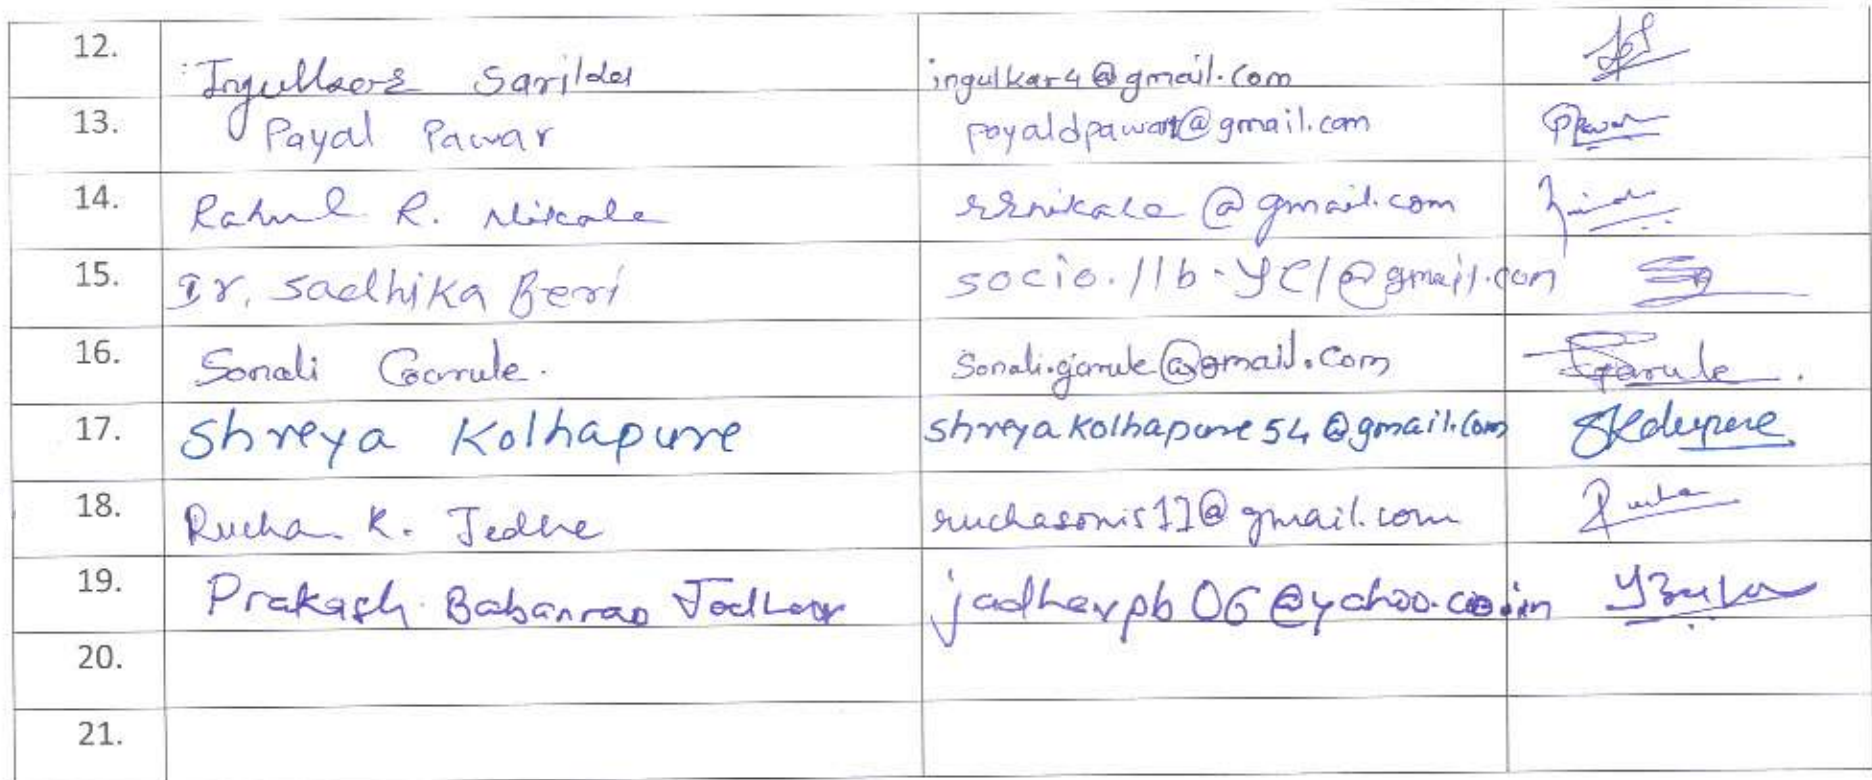 12. Ingulkar Sarika ingulkar4@gmail.com
13. Payal Pawar payaldpawar@gmail.com Pawar
14. Rahul R. Nikale rrnikale@gmail.com
15. Dr. Sadhika Beri socio.llb-YCl@gmail.com
16. Sonali Garule. Sonali.garule@gmail.com Garule.
17. Shreya Kolhapure shreyakolhapure54@gmail.com SKolhapure
18. Rucha K. Jedhe ruchasonis11@gmail.com Rucha
19. Prakash Babanrao Jadhav jadhavpb06@yahoo.co.in
20.
21.